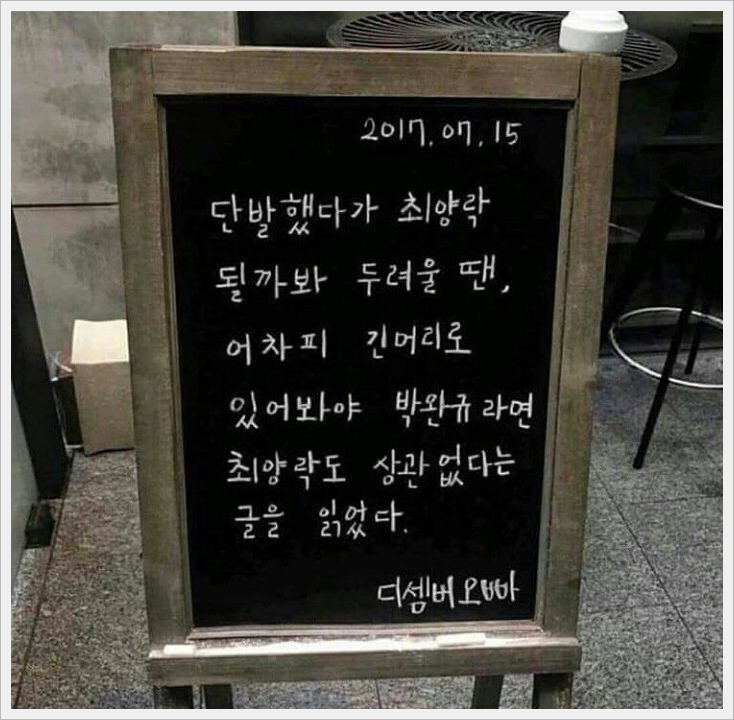 2017. 07. 15
단발했다가 최양락
될까봐 두려울 땐,
어차피 긴머리로
있어봐야 박완규라면
최양락도 상관없다는
글을 읽었다.
디셈버오빠